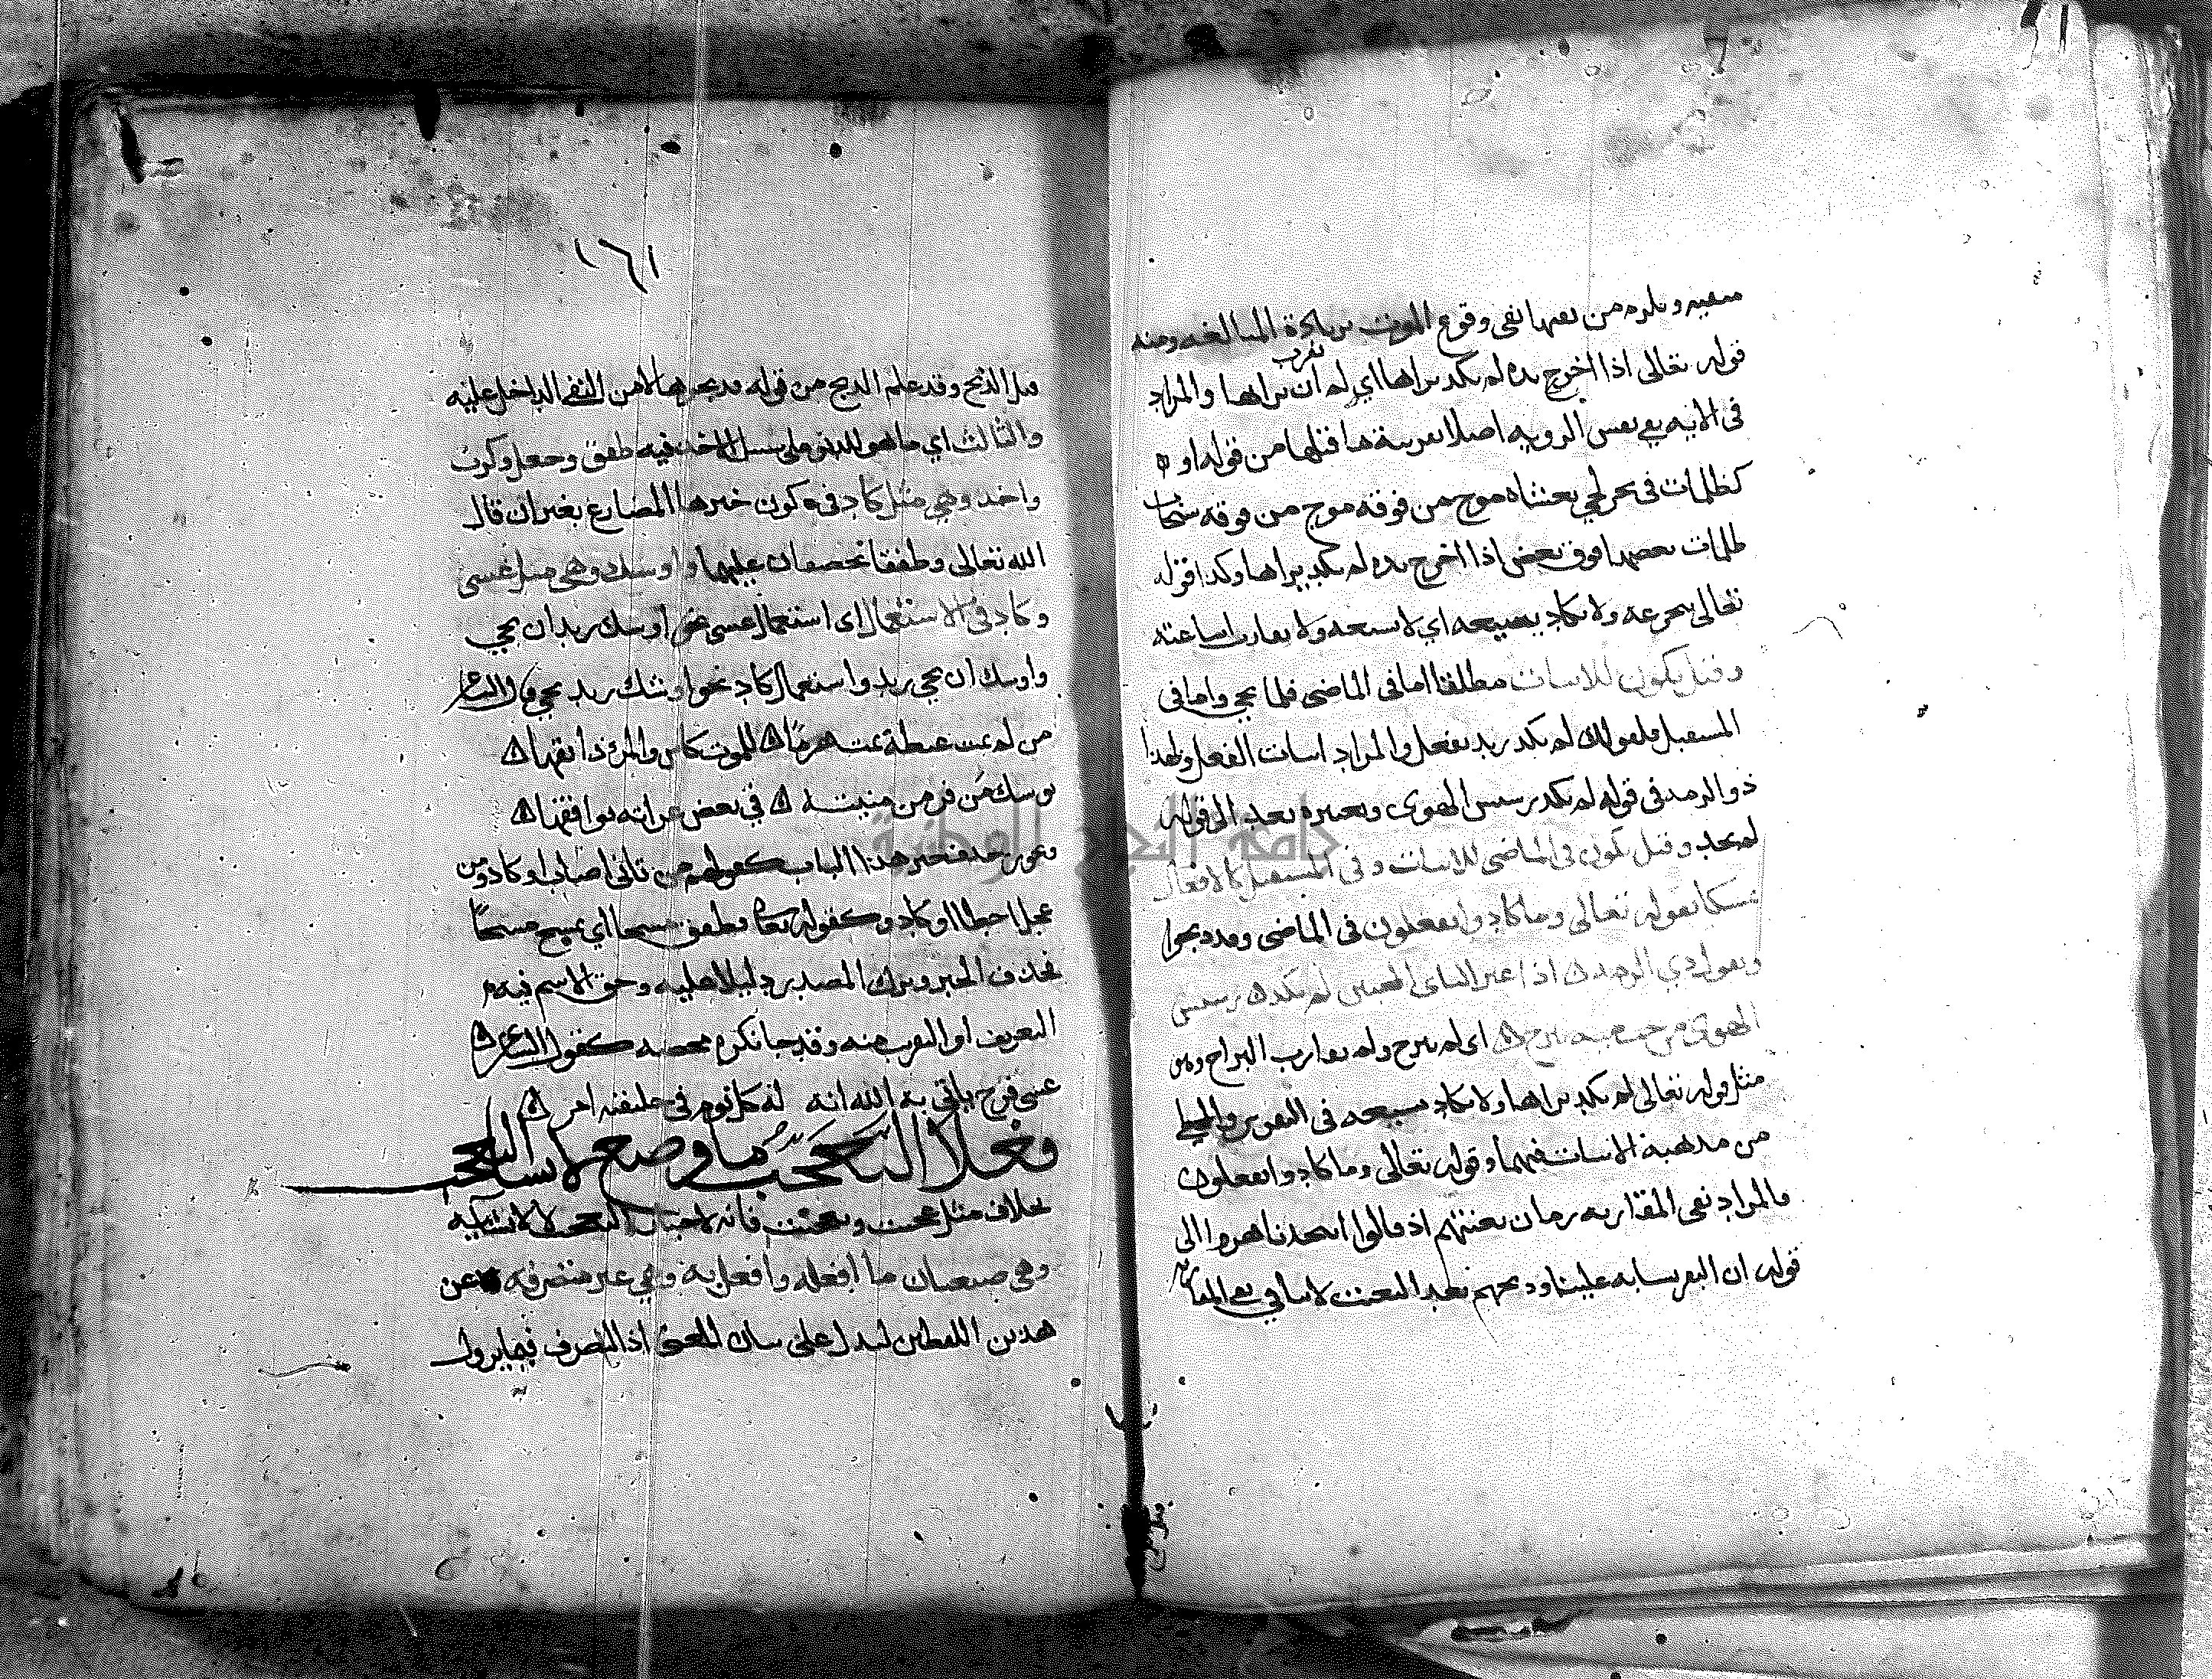 ويلزم من نفيها نفي وقوع الموت بزيادة المبالغه ومنه
قوله تعالى اذا اخرج يده لم يكد يراها اي لم يقرب ان يراها والمراد
في الايه نفي نفس الرويه اصلا بقرينة ما قبلها من قوله او
كظلمات في بحر لجي يغشاه موج من فوقه موج من فوقه سحاب
ظلمات بعضها فوق بعض اذا اخرج يده لم يكد يراها وكذا قوله
تعالى يتجرعه ولا يكاد يسيغه اي لا يسيغه ولا يقارب اساغته
وقيل يكون للاثبات مطلقا اما في الماضي فلما يجي واما في
المستقبل فلقولك لم يكد زيد يفعل والمراد اثبات الفعل ولهذا
ذو الرمه في قوله لم يكد رسيس الهوى وتغييره بعد الى قوله
لم يجد وقيل تكون في الماضي للاثبات وفي المستقبل كالافعال
تمسكا بقوله تعالى وما كادوا يفعلون في الماضي وقد ذبحوا
وبقول ذي الرمه اذا غير الناي المحبين لم يكد رسيس
الهوى من حب ميه يبرح اي لم يبرح ولم يقارب البراح وهي
مثل قوله تعالى لم يكد يراها ولا يكاد يسيغه في التقرير
من مذهبه الاثبات فيهما وقوله تعالى وما كادوا يفعلون
فالمراد نفي المقاربه زمان تعنتهم اذ قالوا اتتخذنا هزوا الى
قوله ان البقر تشابه علينا وذبحهم بعد التعنت لا ينافي نفي المقاربه
١٦١
قبل الذبح وقد علم الذبح من قوله فذبحوها لا من النفي الداخل عليه
والثالث اي ما هو للدنو على سبيل الاخذ فيه طفق وجعل وكرب
واخذ وهي مثل كاد في كون خبرها المضارع بغير ان قال
الله تعالى وطفقا يخصفان عليهما واوشك وهي مثل عسى
وكاد في الاستعمال اي استعمال عسى نحو اوشك زيد ان يجي
واوشك ان يجي زيد واستعمال كاد نحو اوشك زيد يجي قال الشاعر
من لم يمت عبطة يمت هرما للموت كاس والمرء ذائقها
يوشك من فر من منيته في بعض غراته يوافقها
ويجوز حذف خبر هذا الباب كقولهم من تانى اصاب او كاد ومن
عجل اخطا او كاد وكقوله تعا فطفق مسحا اي يمسح مسحا
فحذف الخبر وترك المصدر دليلا عليه وحق الاسم فيه
التعريف او القرب منه وقد جا نكره محضه كقول الشاعر
عسى فرج ياتي به الله انه له كل يوم في خليقته امر
وفعلا التعجب ما وضع لانشا التعجب
بخلاف مثل عجبت وتعجبت فانه لاخبار التعجب لا لانشائه
وهي صيغتان ما افعله وافعل به وهي غير متصرفه عن
هذين اللفظين ليدل على المعنى اذ التصرف فيما يزول